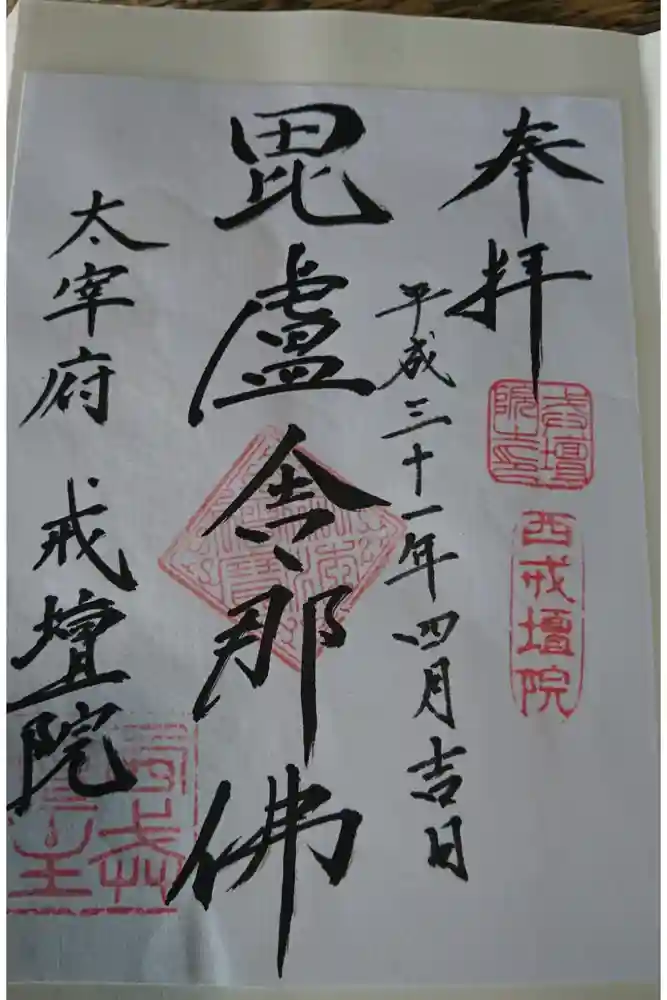 奉拝
西戒壇院
平成三十一年四月吉日
毘盧舎那佛
太宰府 戒壇院